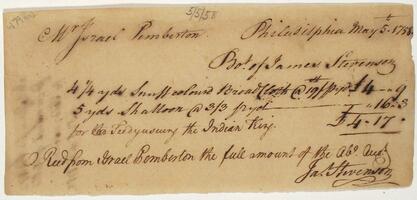 5/5/58
Mr. Israel Pemberton. Philadelphia May 5th 1758
Bot of James Stevenson
4 1/4 yds Snuff colourd Broad Cloth @ 19/ pr yd £4 — 9
5 yds Shalloon @ 3/3 pr yd " 16 . 3
for the Teedyuscung the Indian King. £ 4 . 17
Recd from Israel Pemberton the full amount of the Abo. Acct
Jas Stevenson